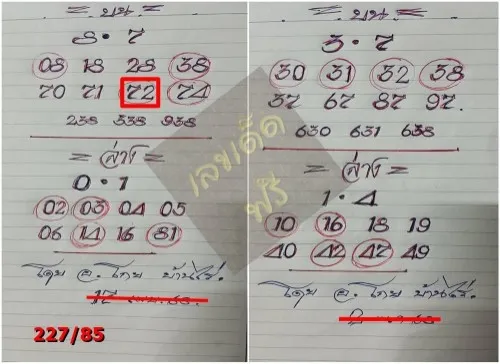 = บน =
8 • 7
08 18 28 38
70 71 72 74
238 338 938
= ล่าง =
0 • 1
02 03 04 05
06 14 16 81
โดย อ. โกย บ้านไร่.
227/85
= บน =
3 • 7
30 31 32 38
37 67 87 97.
630 631 638
= ล่าง =
1 • 4
10 16 18 19
40 42 47 49
โดย อ. โกย บ้านไร่.
เลขเด็ด
ฟรี